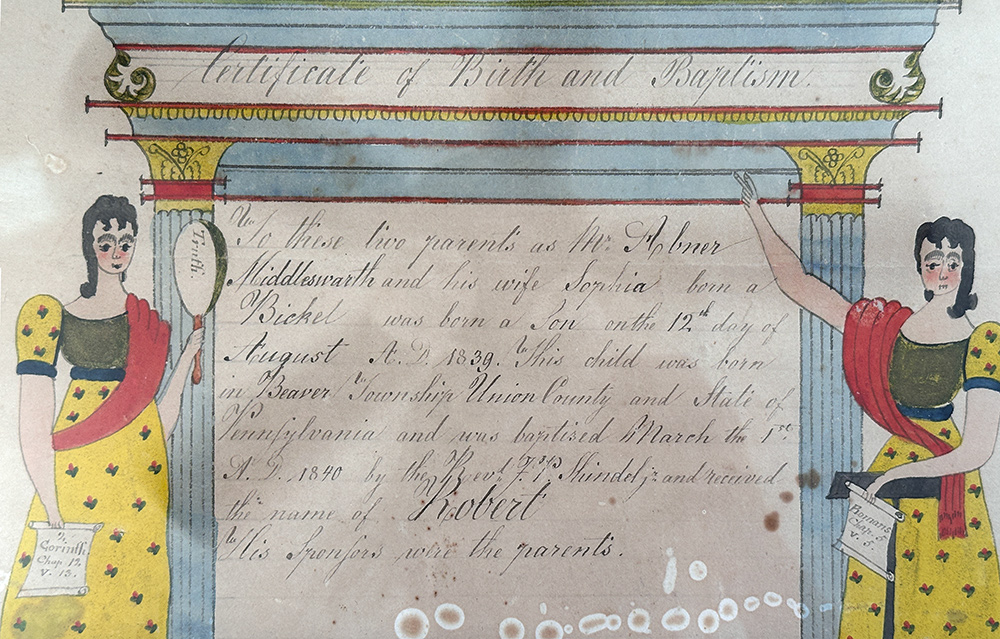 Certificate of Birth and Baptism.
Truth.
To these two parents as Mr. Abner
Middleswarth and his wife Sophia born a
Bickel was born a Son on the 12th day of
August A.D. 1839. This child was born
in Beaver Township Union County and State of
Pennsylvania and was baptised March the 1st
A.D. 1840 by the Revd. J. P. Shindel jr. and received
the name of Robert
His Sponsors were the parents.
Corinth.
Chap 12.
v. 13.
Romans
Chap. 5
v. 5.